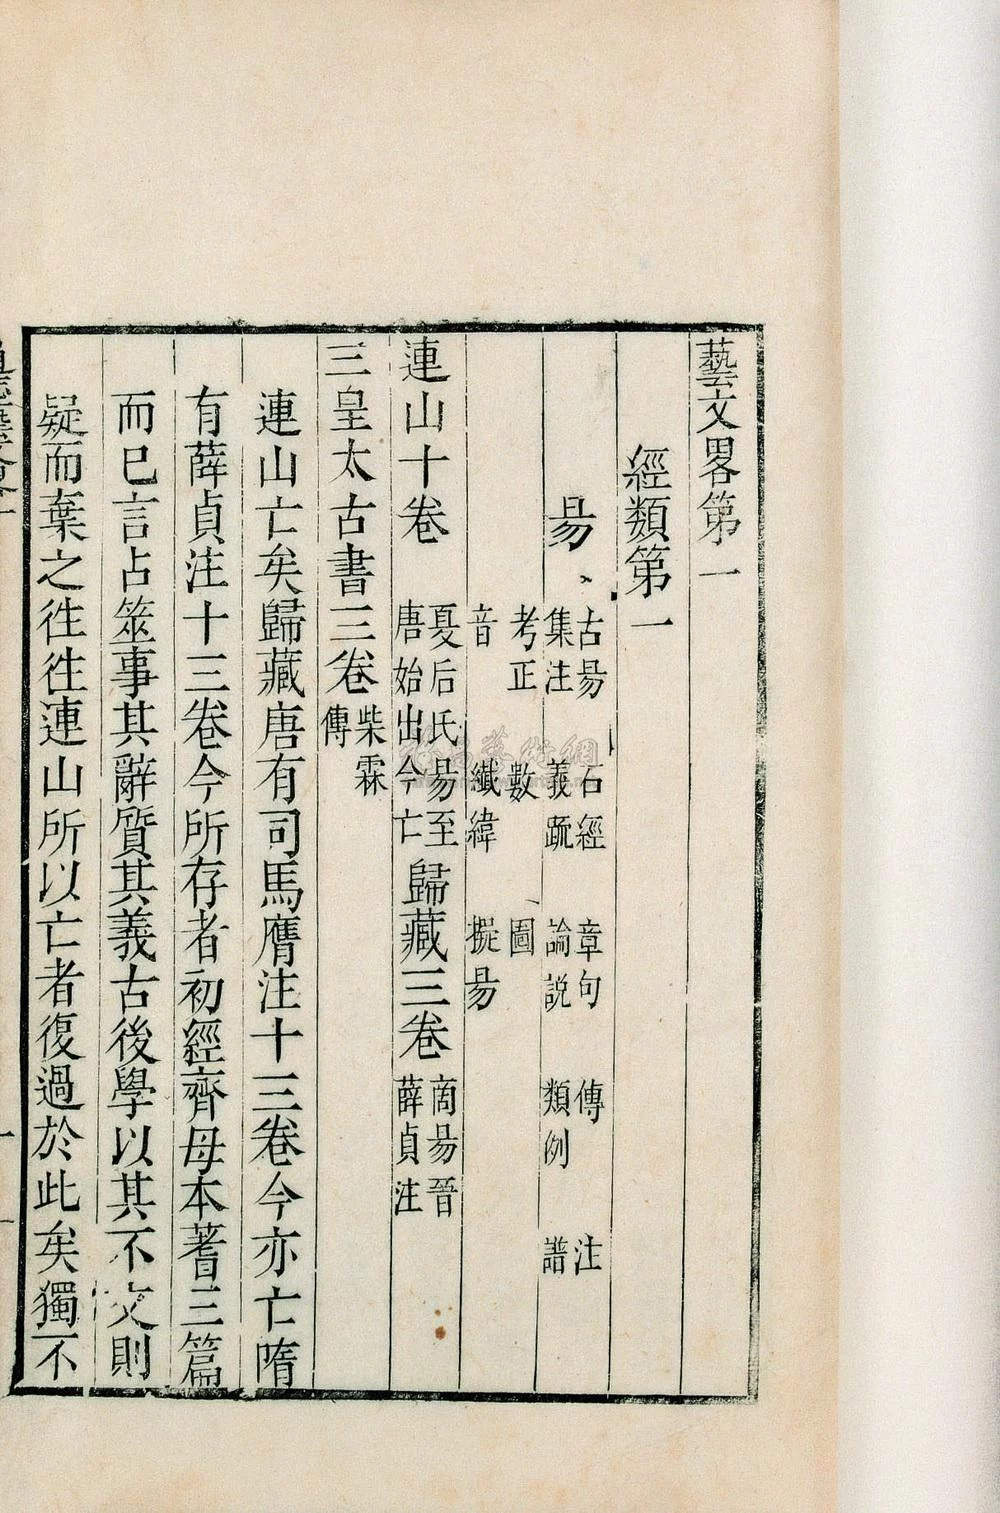 藝文畧第一
經類第一
易 古易 石經 章句 傳 注
集注 義䟽 論說 類例 譜
考正 數 圖
音 纖緯 擬易
連山十卷 夏后氏易至唐始出今亡 歸藏三卷 商易晉薛貞注
三皇太古書三卷 柴霖傳
連山亡矣歸藏唐有司馬膺注十三卷今亦亡隋
有薛貞注十三卷今所存者初經齊母本蓍三篇
而已言占筮事其辭質其義古後學以其不文則
疑而棄之徃徃連山所以亡者復過於此矣獨不